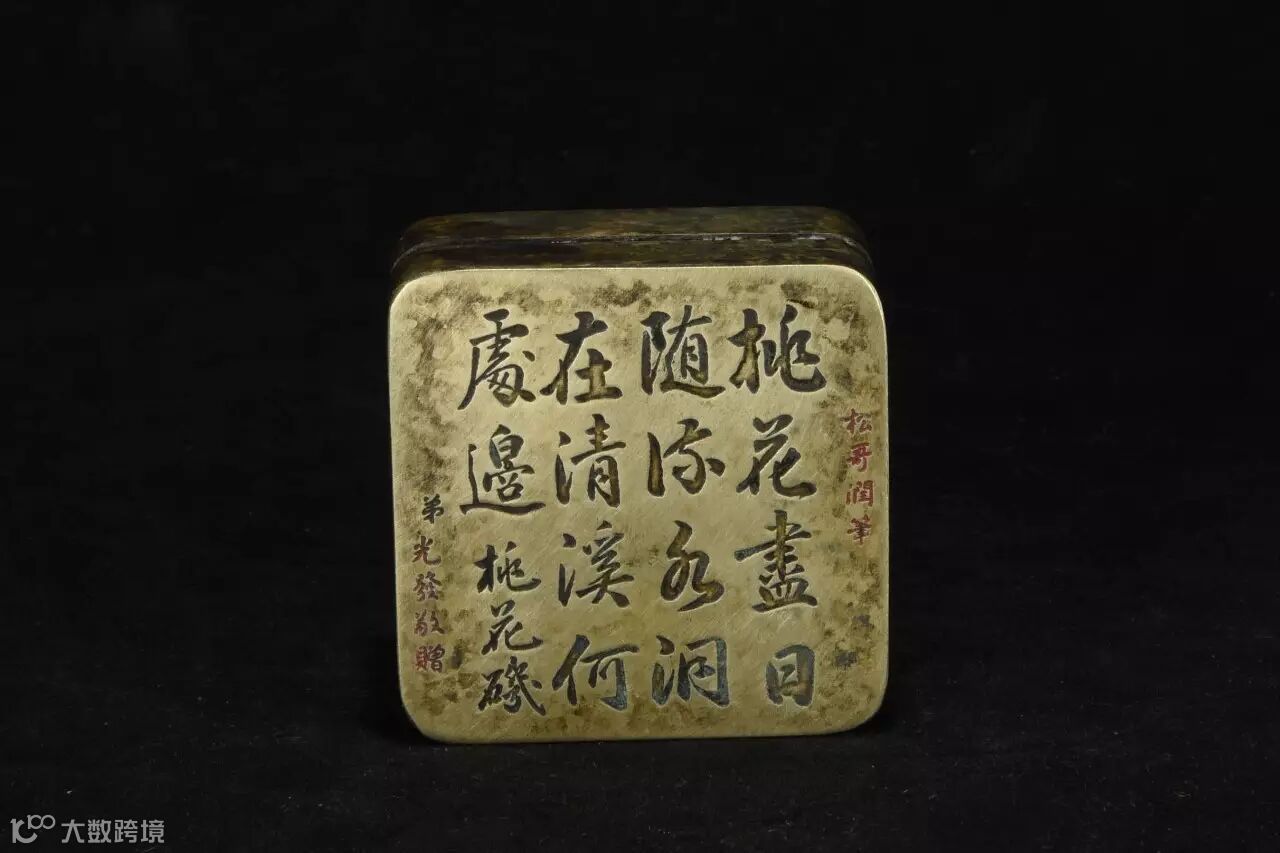 松哥润筆
桃花盡日
随流水洞
在清溪何
處邊 桃花磯
弟光發敬贈
大数跨境